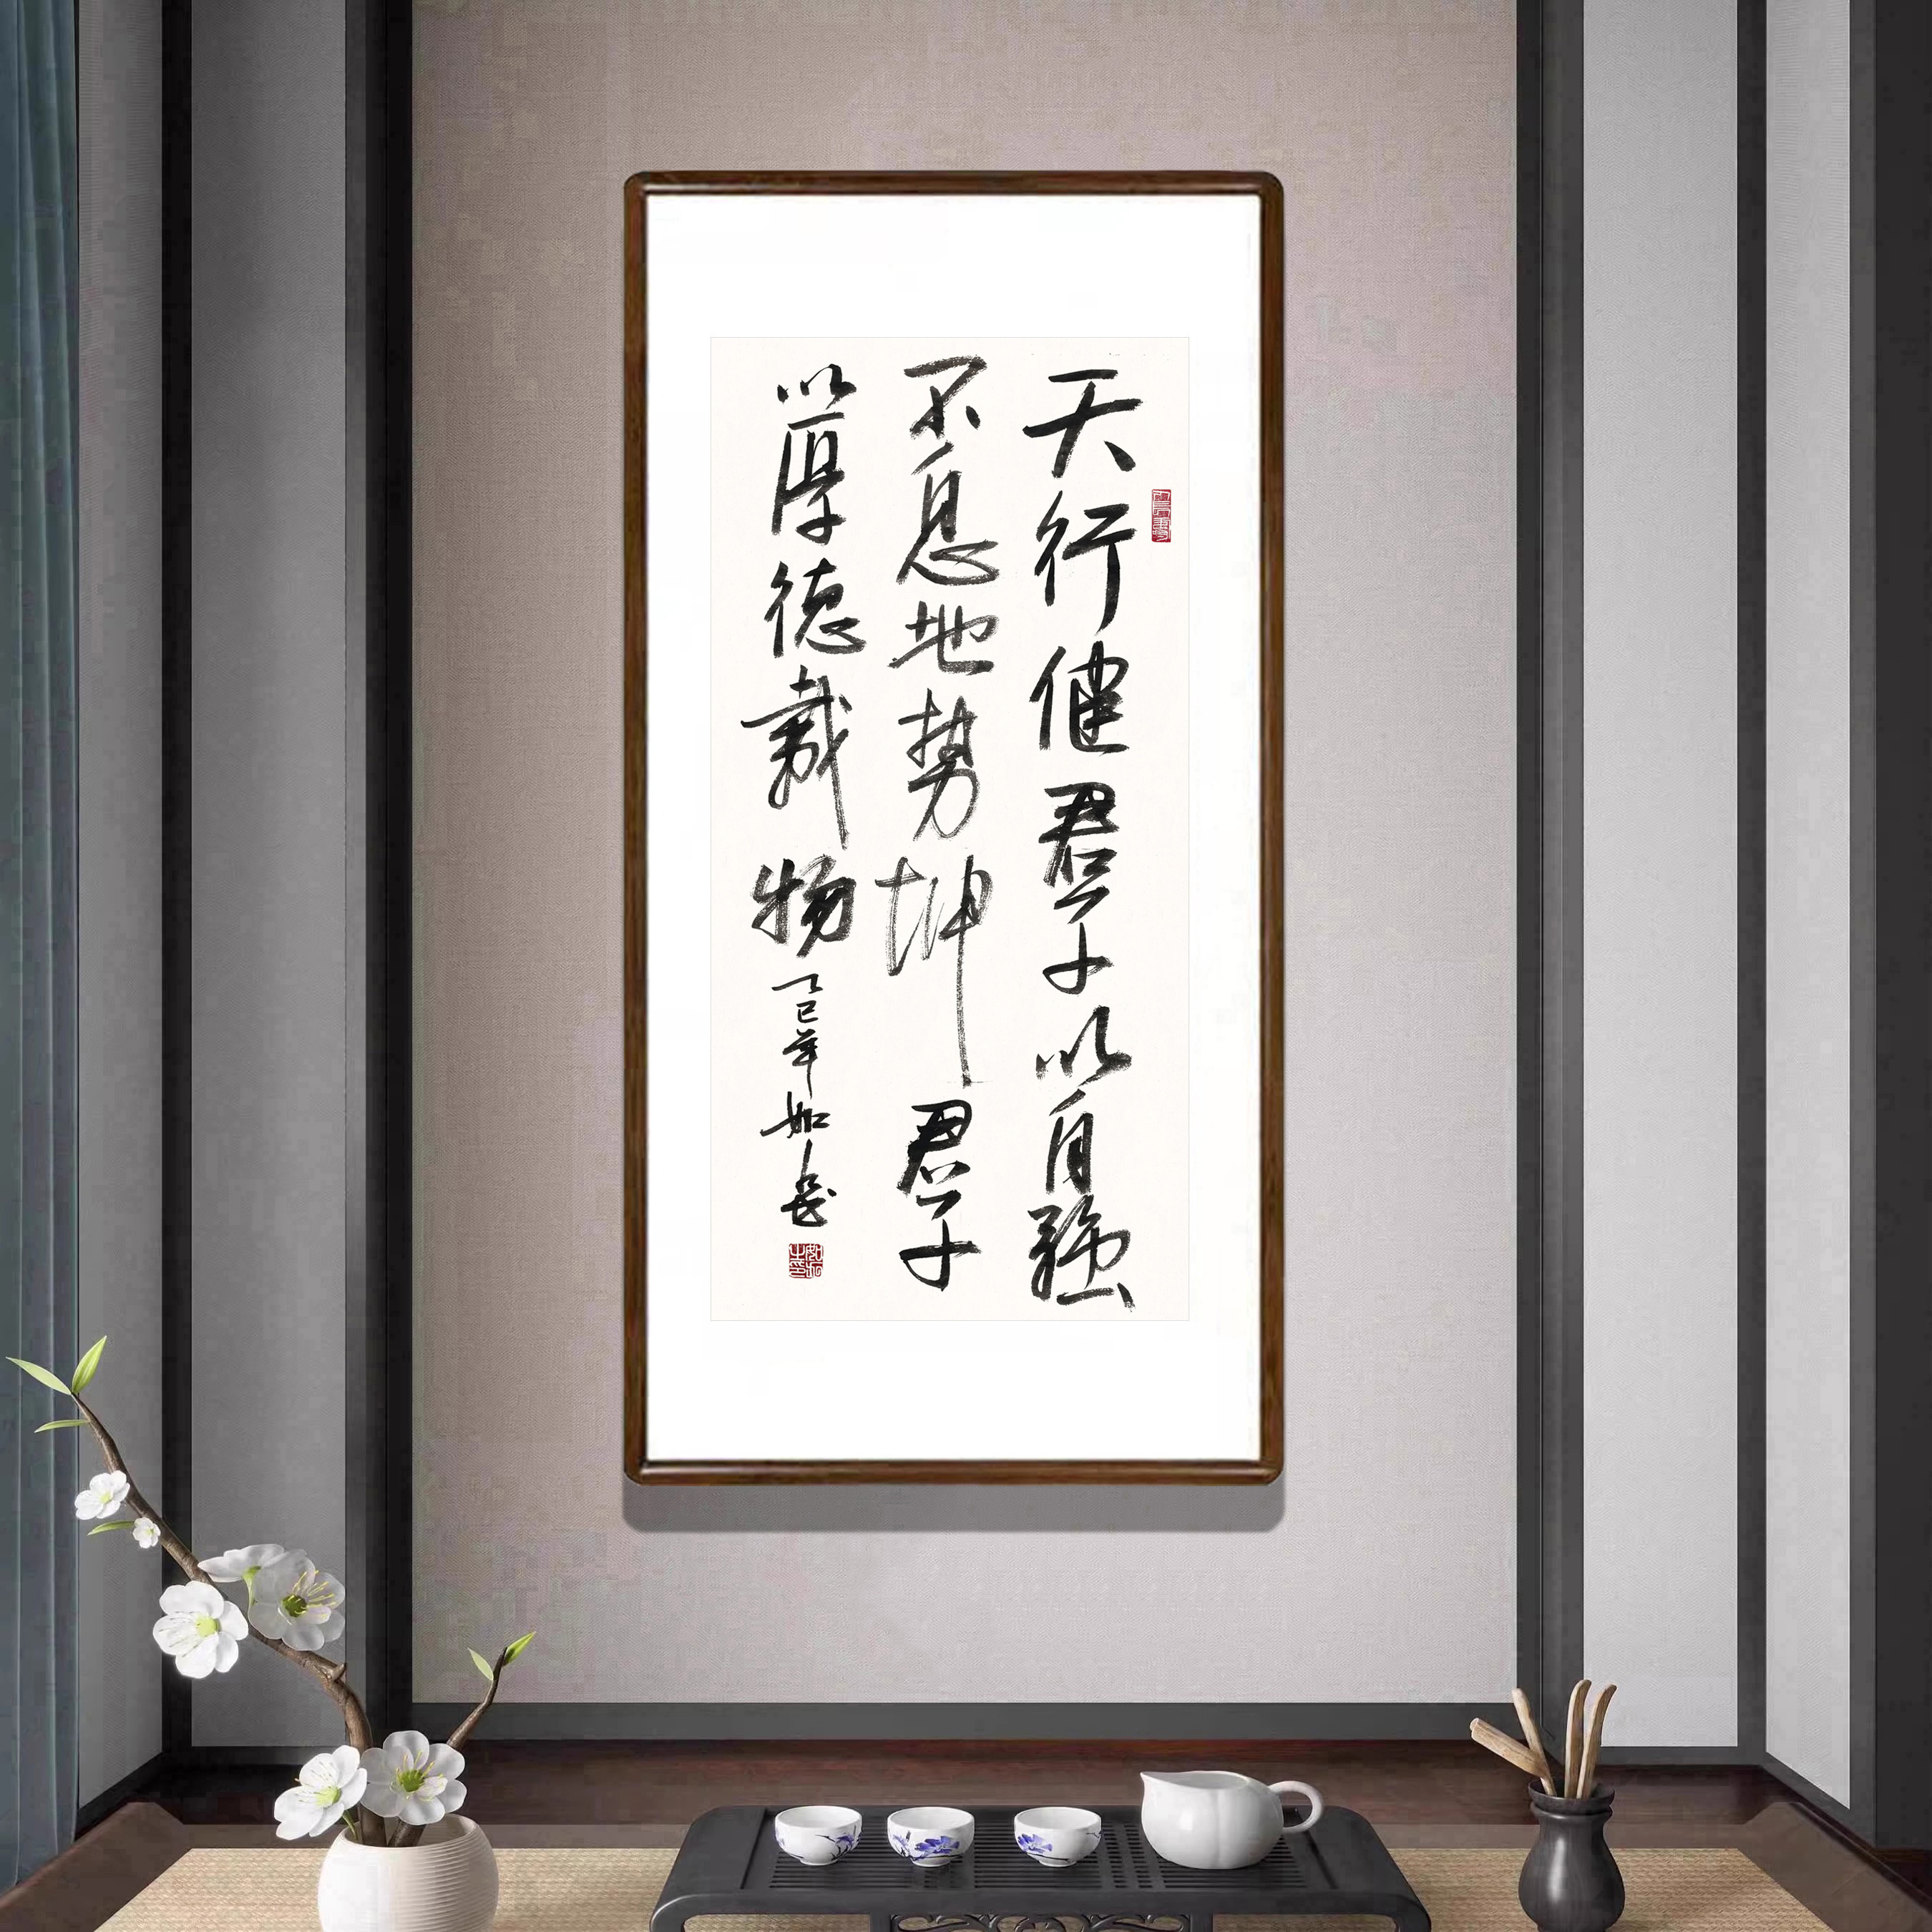 天行健君子以自强
不息地势坤君子
以厚德载物乙巳年如岳